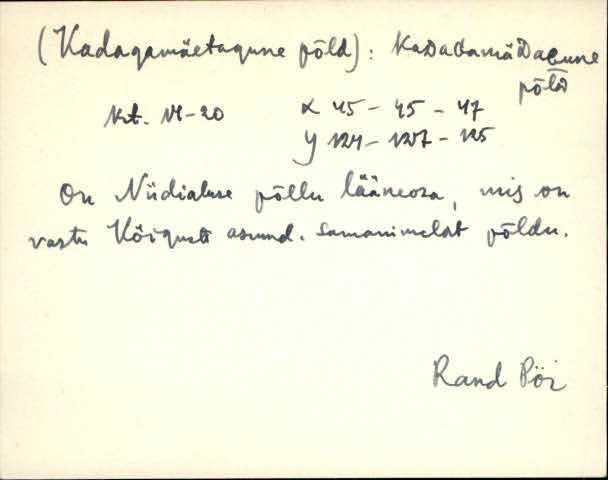 (Kadagamäetagune põld): kaDaGamäDaGune
põlD
kt. VI-20 X 45 - 45 - 47
Y 124 - 127 - 125
On Niidialuse põllu lääneosa, mis on
vastu Kõiguste asund. samanimelist põldu.
Rand Pöi